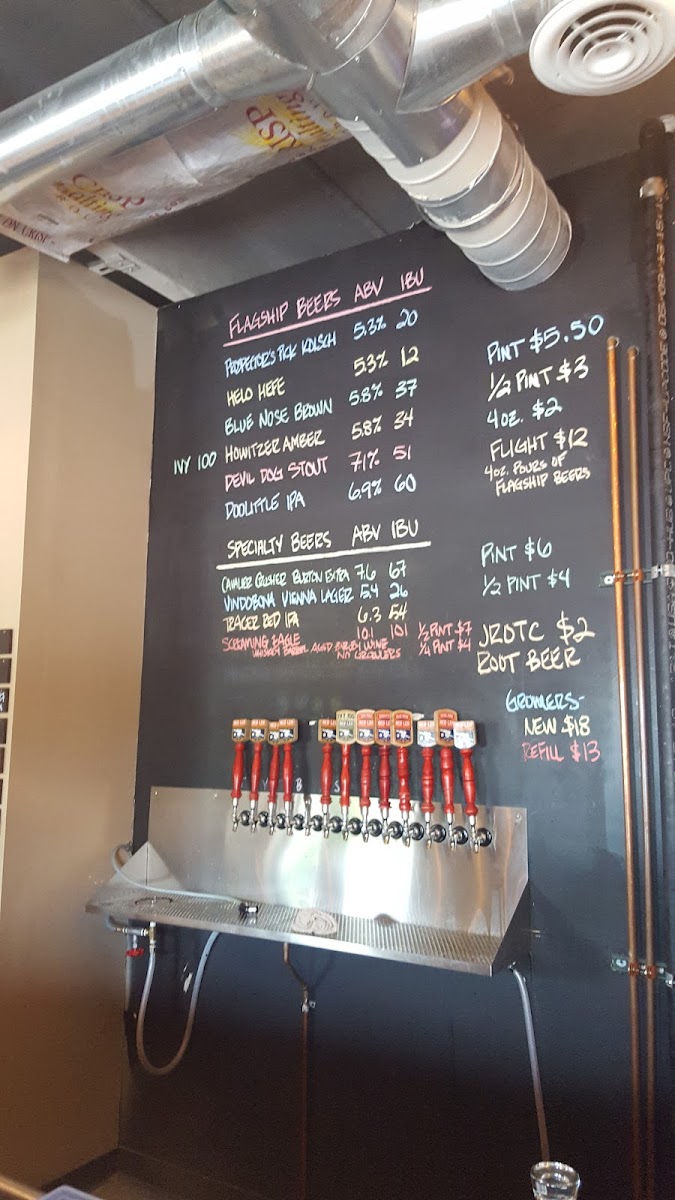 CRISP
FLAGSHIP BEERS ABV IBU
PROSPECTOR'S PICK KOLSCH 5.3% 20
HELO HEFE 5.3% 12
BLUE NOSE BROWN 5.8% 37
IVY 100 HOWITZER AMBER 5.8% 34
DEVIL DOG STOUT 7.1% 51
DOOLITTLE IPA 6.9% 60
PINT $5.50
1/2 PINT $3
4OZ. $2
FLIGHT $12
4OZ. POURS OF
FLAGSHIP BEERS
SPECIALTY BEERS ABV IBU
CAVALIER GUSHER BURTON EXTRA 7.6 67
VINDOBONA VIENNA LAGER 5.4 26
TRACER RED IPA 6.3 54
SCREAMING EAGLE 10.1 101 1/2 PINT $7
WHISKEY BARREL AGED BARLEY WINE 1/4 PINT $4
NO GROWLERS
PINT $6
1/2 PINT $4
JROTC $2
ROOT BEER
GROWLERS-
NEW $18
REFILL $13